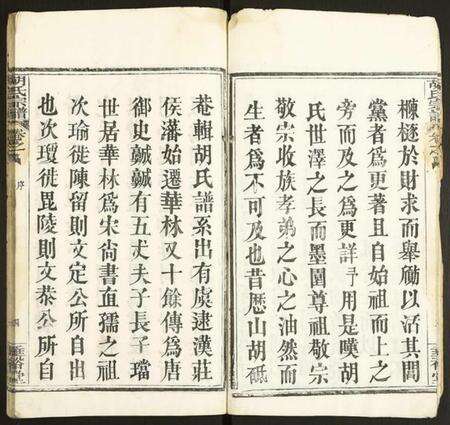 胡氏宗譜
橡檖於財求而舉勵以活其間
黨者為更著且自始祖而上之
旁及之為更詳予用是嘆胡
氏世澤之長而墨園尊祖敬宗
敬宗收族孝弟之心之油然而
生者為不可及也昔歷山胡砥
菴輯胡氏譜系出有虞逮漢莊
侯瀋始遷華林又十餘傳為唐
御史虣虣有五丈夫子長子璫
世居華林為宋尚書直孺之祖
次瑜徙陳留則文定公所自出
也次瓊徙毘陵則文恭公所自
胡氏宗譜
卷之
序